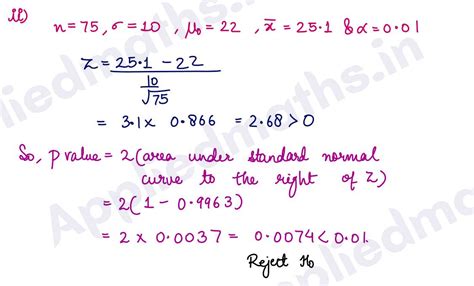 ii)
n=75, σ=10, μ₀=22, x̄=25.1 & α=0.01
Z = 25.1-22
10
√75
= 3.1 x 0.866 = 2.68>0
So, p value = 2(area under standard normal
curve to the right of Z)
= 2(1-0.9963)
= 2 x 0.0037 = 0.0074<0.01.
Reject H₀
Appliedmaths.in